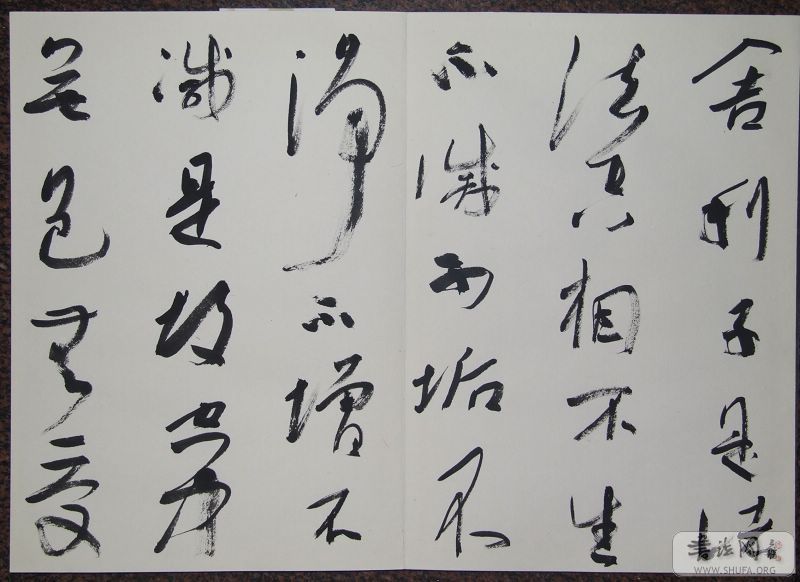 舍利子是诸
法空相不生
不滅不垢不
净不增不
減是故空中
无色無受
書法网
WWW.SHUFA.ORG